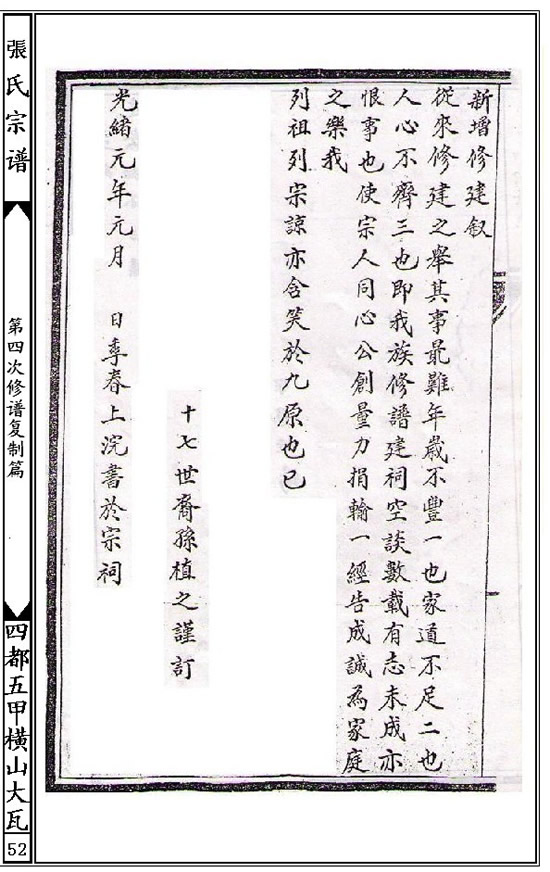 新增修建叙
從來修建之舉其事最難年歲不豐一也家道不足二也
人心不齊三也即我族修譜建祠空談數載有志未成亦
恨事也使宗人同心公創量力捐輸一經告成誠為家庭
之樂我
列祖列宗諒亦含笑於九原也已
十七世裔孫植之謹訂
光緒元年元月 日季春上浣書於宗祠
張氏宗谱
第四次修谱复制篇
四都五甲橫山大瓦
52